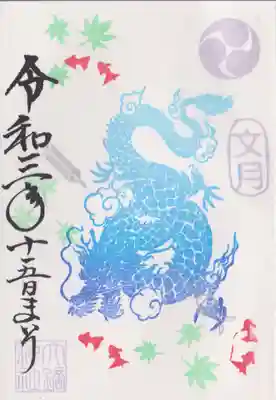 文月
令和三年十五日まいり